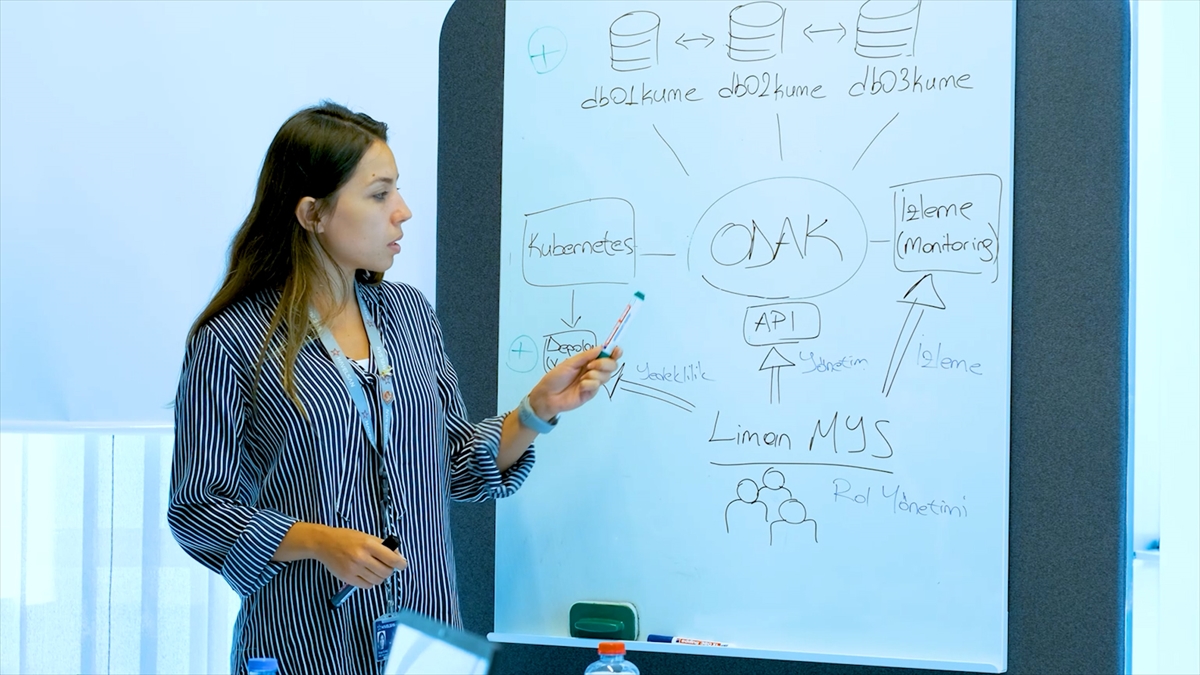 db01kume
db02kume
db03kume
Kubernetes
ODAK
İzleme
(Monitoring)
API
Yedeklilik
Yönetim
İzleme
Liman MYS
Rol Yönetimi